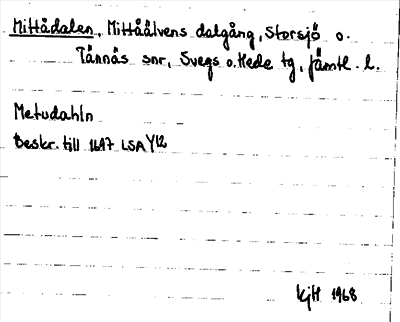 Mittådalen, Mittåälvens dalgång, Storsjö o.
Tännäs snr, Svegs o. Hede tg, Jämtl. l.
Metudahln
Beskr. till 1647 LSA Y12
KjH 1968